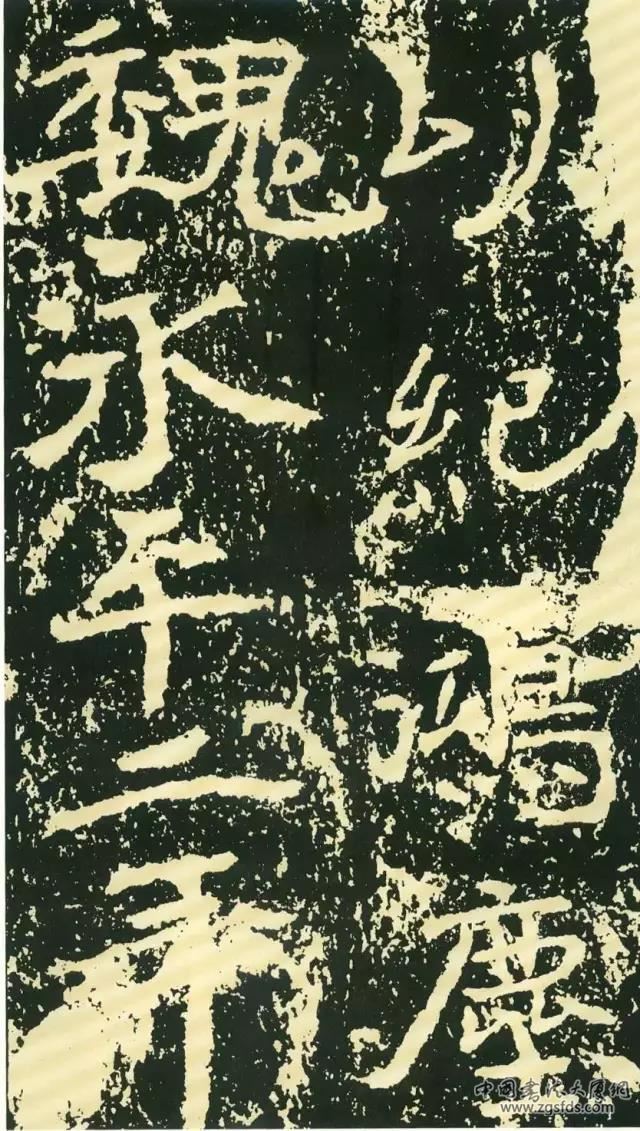 以紀鴻塵
魏永平二年
中国书法大厦網
www.zgsfds.com